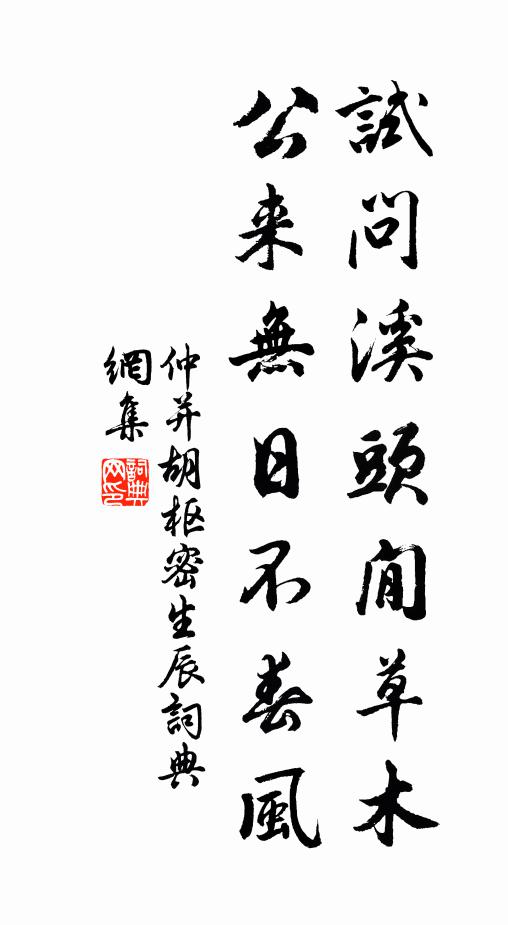 試問溪頭閒草木
公来無日不春風
仲并胡枢密生辰詞典
網集
詞典
网印